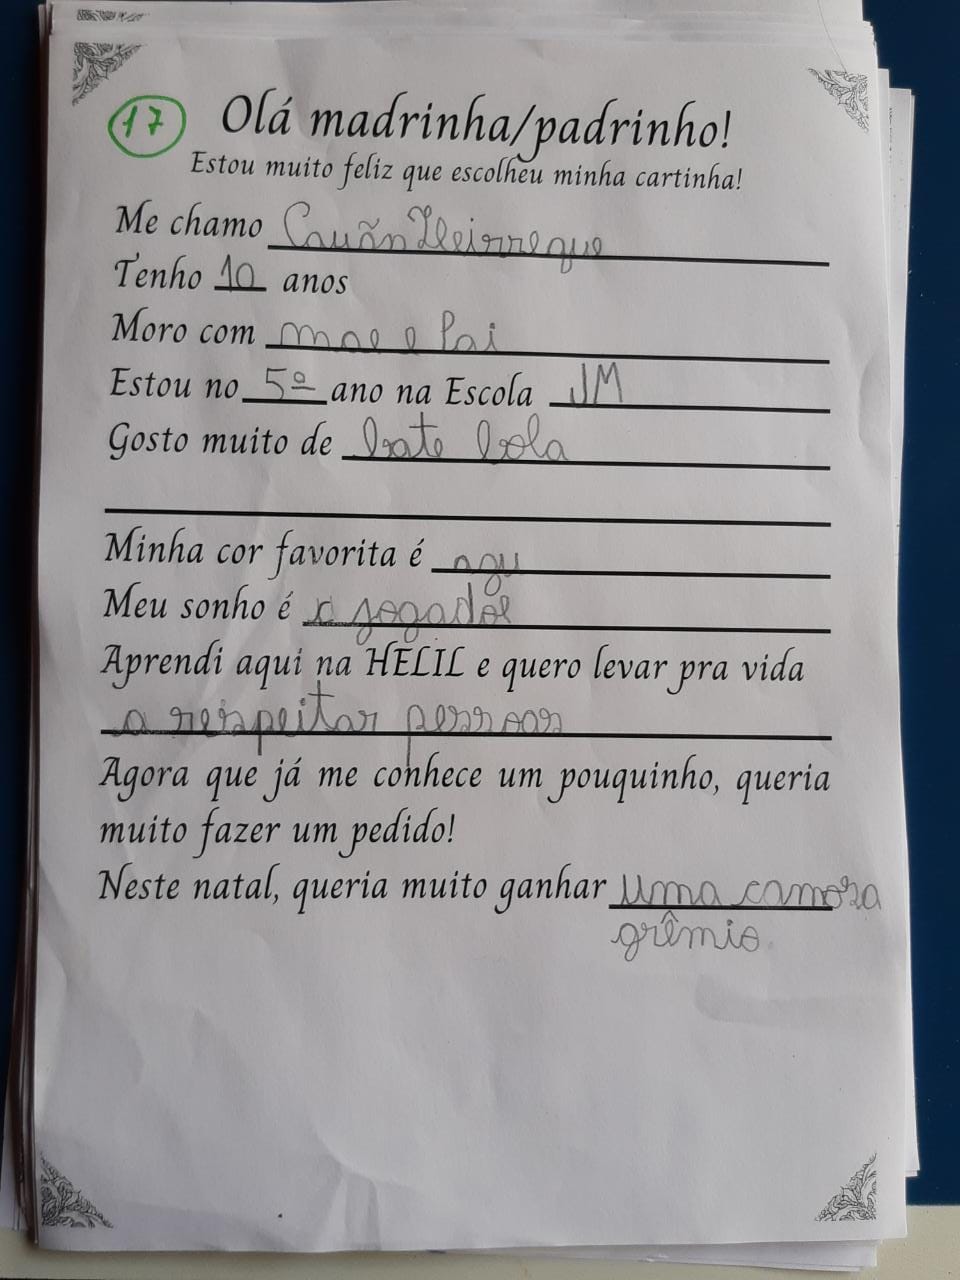 17
Olá madrinha/padrinho!
Estou muito feliz que escolheu minha cartinha!
Me chamo Cauãn Heirreque
Tenho 10 anos
Moro com mae e Pai
Estou no 5º ano na Escola JM
Gosto muito de bate bola
Minha cor favorita é azu
Meu sonho é jogador
Aprendi aqui na HELIL e quero levar pra vida
a respeitar pessoas
Agora que já me conhece um pouquinho, queria
muito fazer um pedido!
Neste natal, queria muito ganhar uma
grêmio